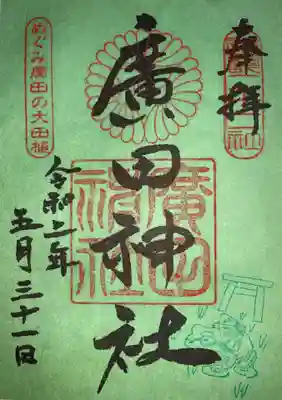 奉拝
廣田神社
廣田
神社
めぐみ廣田の大田植
令和二年
五月三十一日